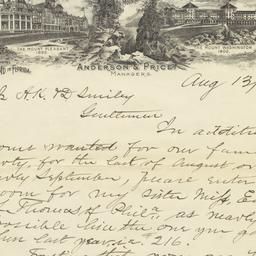 THE MOUNT PLEASANT
1895
THE MOUNT WASHINGTON
1902
IN FLORIDA
ANDERSON & PRICE
MANAGERS.
Aug 13/
A.K. & D Smiley
Gentlemen
In additi
ooms wanted for our fam
arty, for the last of August or
arly September, please enter
room for my sister Miss E
L. Thomas of Phil^a, as nearly
possible like the one you ga
her last year, i.e. 216.